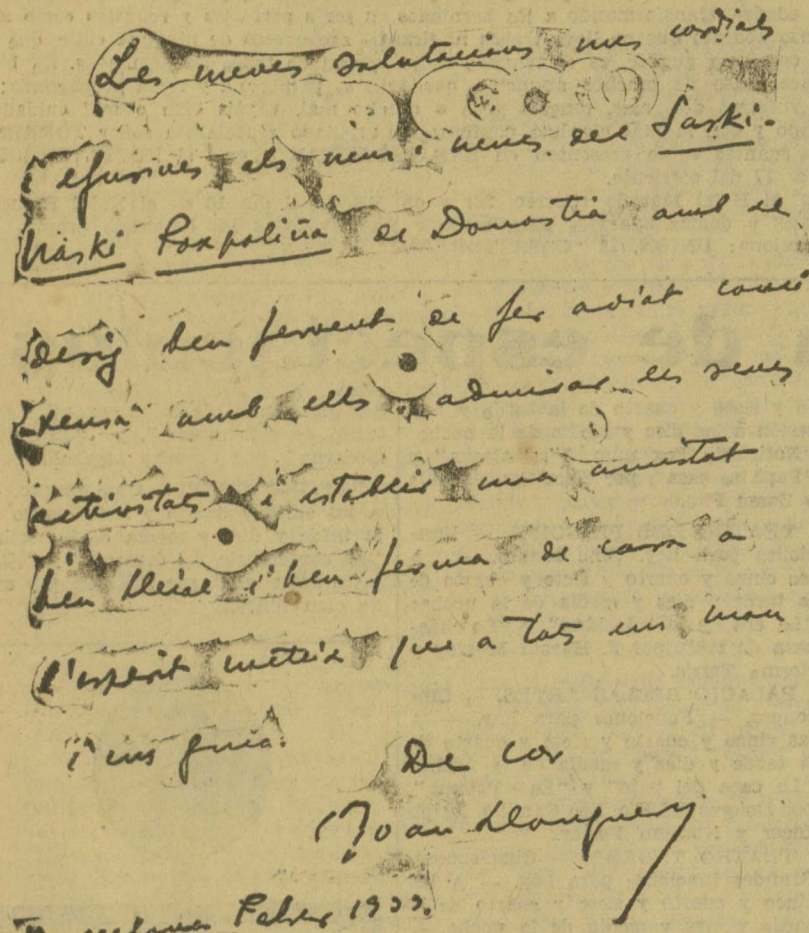 Les meves salutacions mes cordials
i efusives als nens i nenes del Saski-
Naski Poxpoliña de Donostia amb el
desig ben fervent de fer aviat coneixensa amb ells admirar les seves
activitats i establir una amistat
ben lleial i ben ferma de cara a
l'esperit mateix que a tots ens mou
i ens guia.
De cor
Joan Llongueras
Barcelona Febrer 1933.